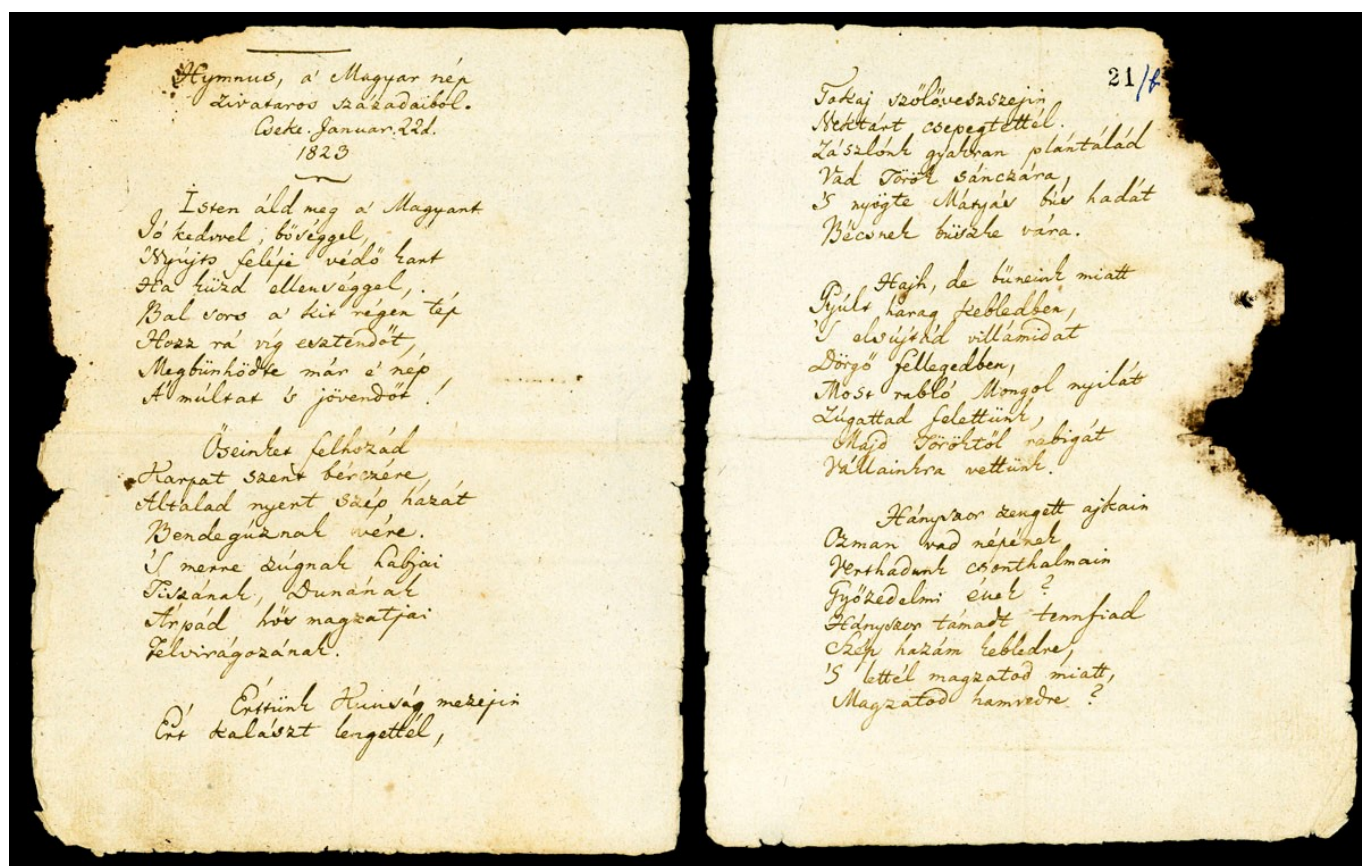 Hymnus, a' Magyar nép
zivataros századaiból.
Cseke. Januar. 22d.
1823
Isten áld meg a' Magyart
Jó kedvvel, bőséggel,
Nyújts feléje védő kart
Ha küzd ellenséggel,
Bal sors a' kit régen tép
Hozz rá víg esztendőt,
Megbünhödte már e' nép
A' múltat 's jövendőt!
Őseinket felhozád
Karpat szent bérczére
Általad nyert szép hazát
Bendegúznak vére.
'S merre zúgnak habjai
Tiszának, Dunának
Árpád hős magzatjai
Felvirágozának.
Értünk Kunság mezejin
Ért kalászt lengettél,
21/b
Tokaj szőlővesszejin
Nektárt csepegtettél.
Zászlónk gyakran plántálád
Vad Török sánczára,
'S nyögte Mátyás bús hadát
Bécsnek büszke vára.
Hajh, de büneink miatt
Gyúlt harag kebledben,
'S elsújtád villámidat
Dörgő fellegedben,
Most rabló Mongol nyilát
Zúgattad felettünk,
Majd Töröktől rabigát
Vállainkra vettünk.
Hányszor zengett ajkain
Ozman vad népének
Verthadunk csonthalmain
Győzedelmi ének?
Hányszor támadt tennfiad
Szép hazám kebledre,
'S lettél magzatod miatt,
Magzatod hamvedre?